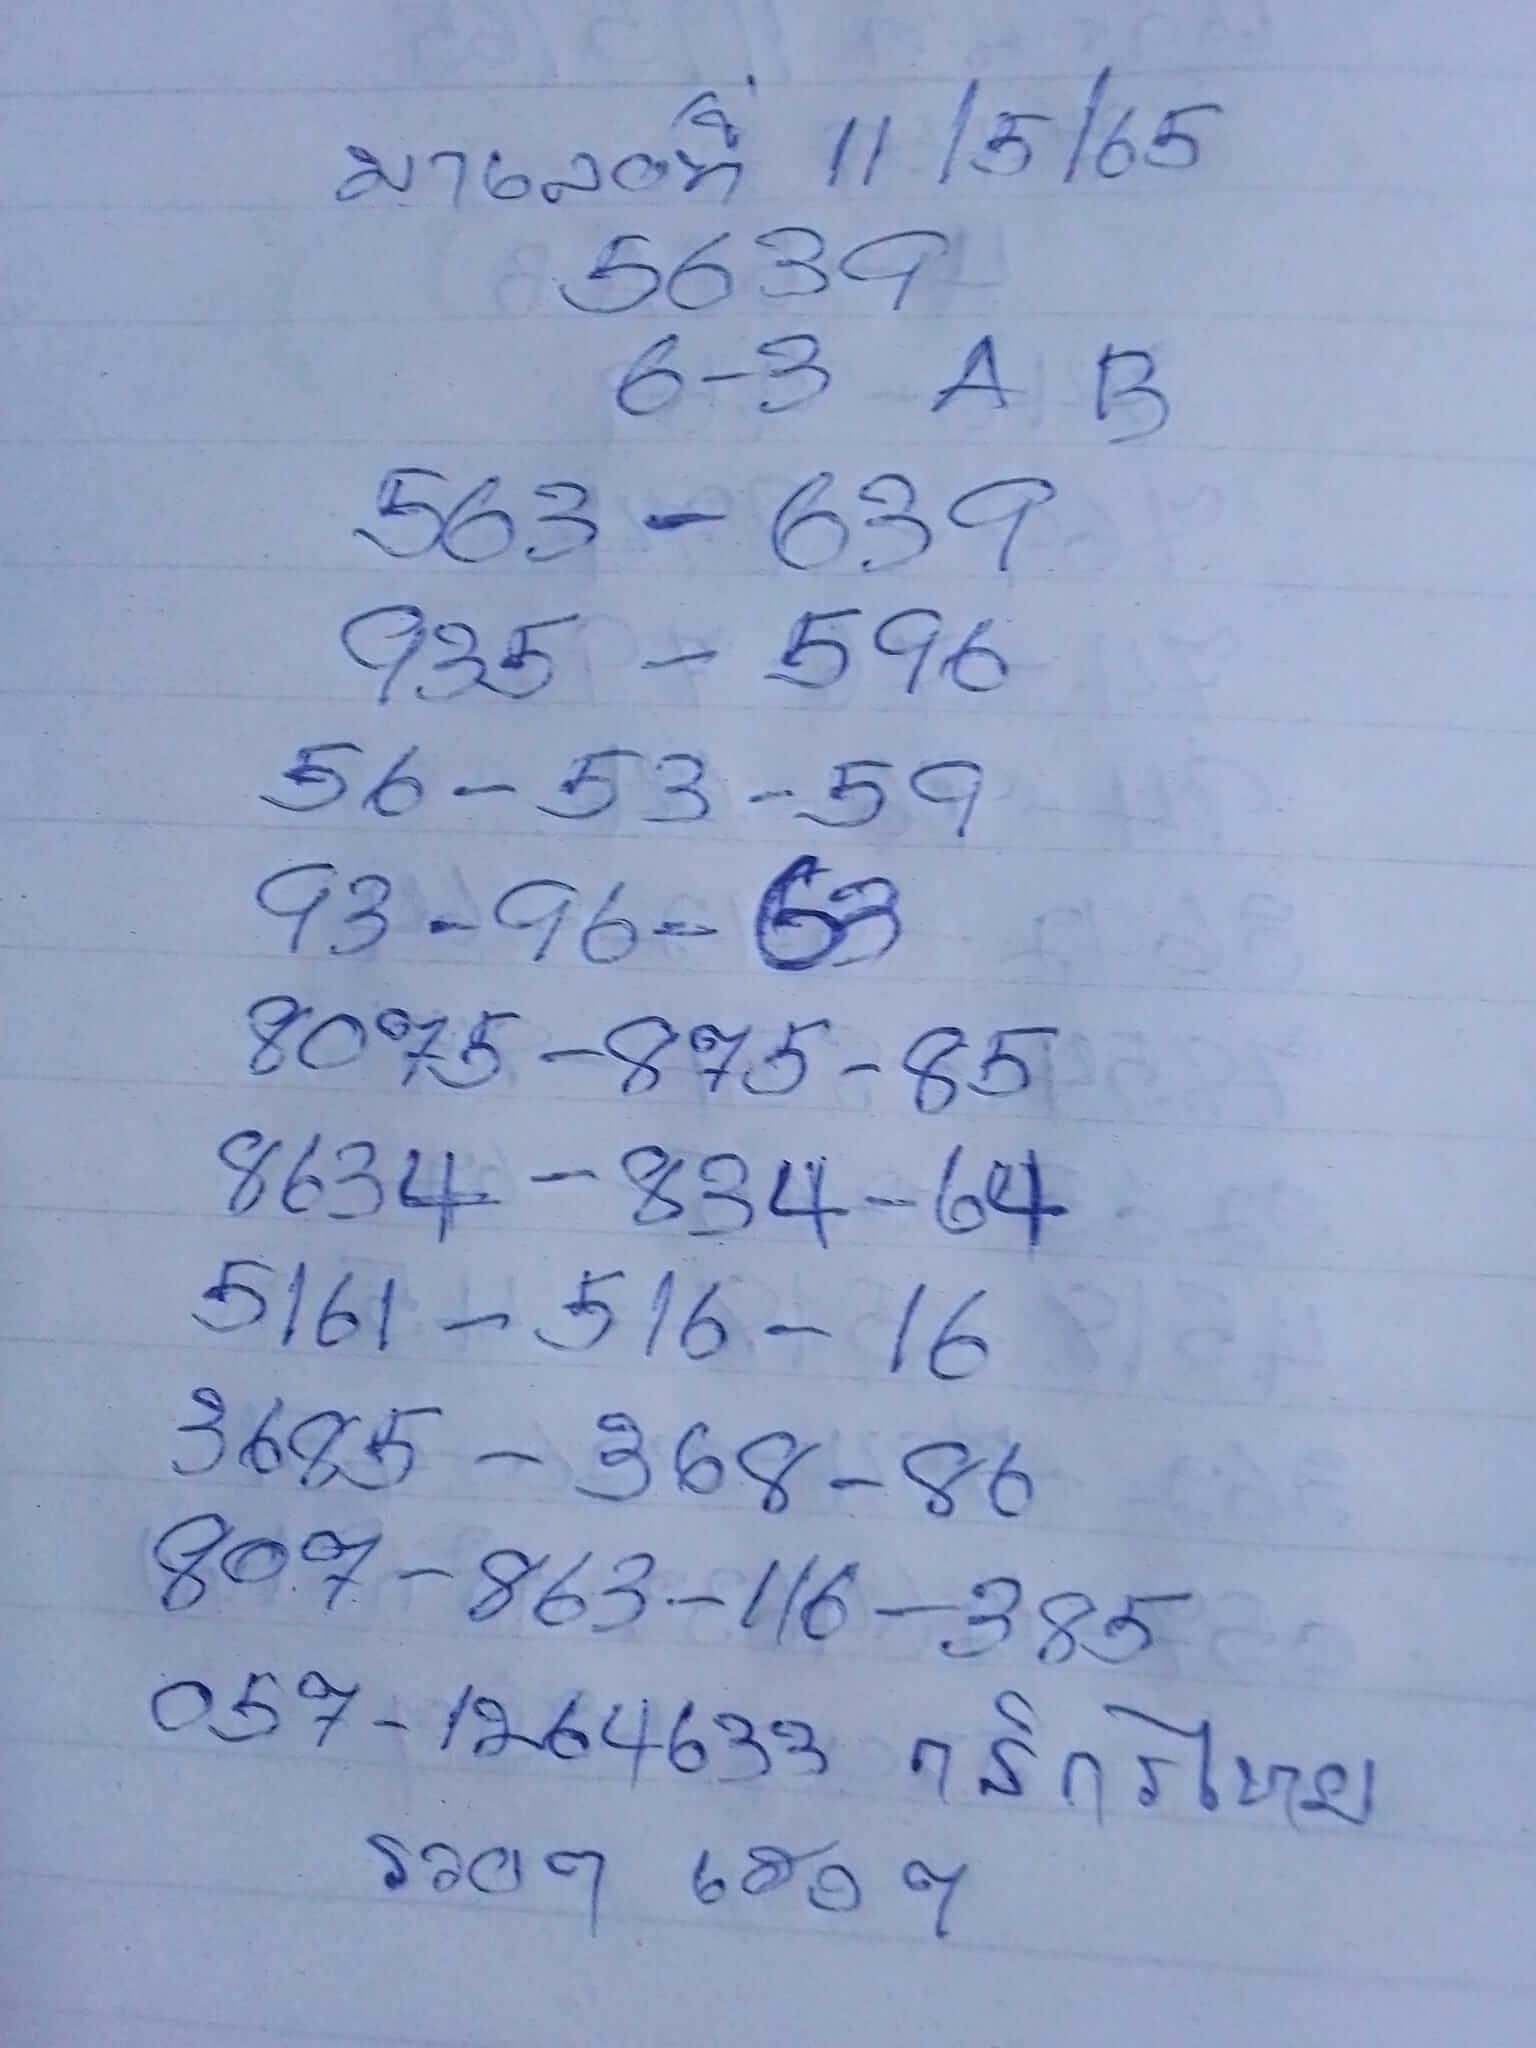 มาเลย์ที่ 11/5/65
5639
6-3 A B
563 - 639
935 - 596
56 - 53 - 59
93 - 96 - 63
8075 - 875 - 85
8634 - 834 - 64
5161 - 516 - 16
3685 - 368 - 86
807 - 863 - 116 - 385
057-1264633 กสิกรไทย
รวยๆ เฮงๆ